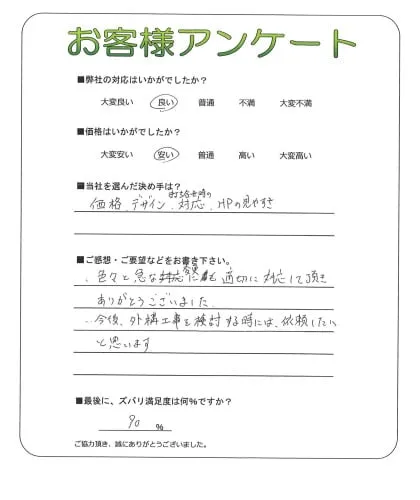 お客様アンケート
■弊社の対応はいかがでしたか？
大変良い 良い 普通 不満 大変不満
■価格はいかがでしたか？
大変安い 安い 普通 高い 大変高い
■当社を選んだ決め手は？
お打合せ時の
価格、デザイン、対応、HPの見やすさ
■ご感想・ご要望などをお書き下さい。
変更
・色々と急な対応にも適切に対応して頂き
ありがとうございました。
・今後、外構工事を検討する時には、依頼したい
と思います
■最後に、ズバリ満足度は何％ですか？
90 ％
ご協力頂き、誠にありがとうございました。